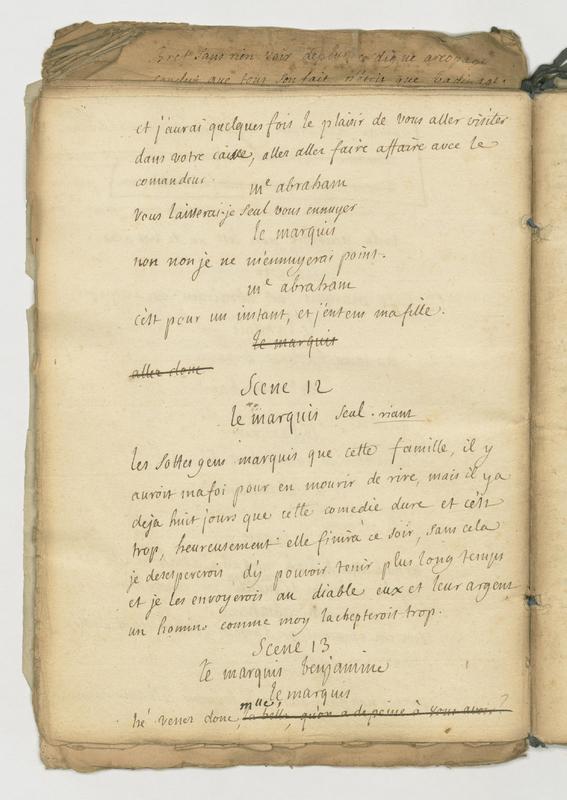 bret sans rien voir
conclut que tous son fait n'étoit que badinage.
et j'aurai quelques fois le plaisir de vous aller visiter
dans votre caisse, allez allez faire affaire avec le
comandeur.
me abraham
vous laisserai-je seul vous ennuyer
le marquis
non non je ne m'ennuyerai point.
me abraham
c'ést pour un instant, et j'entens ma fille.
le marquis
allez donc
Scene 12
le marquis seul. riant
les sottes gens marquis que cette famille, il y
auroit mafoi pour en mourir de rire, mais il y a
deja huit jours que cette comedie dure et c'ést
trop, heureusement elle finira ce soir, sans cela
je desespererois d'y pouvoir tenir plus long temps
et je les envoyerois au diable eux et leur argent
un homme comme moy l'achepteroit trop.
Scene 13
le marquis benjamine
le marquis
hé venez donc, mlle la belle, qu'on a de peine à vous avoir?